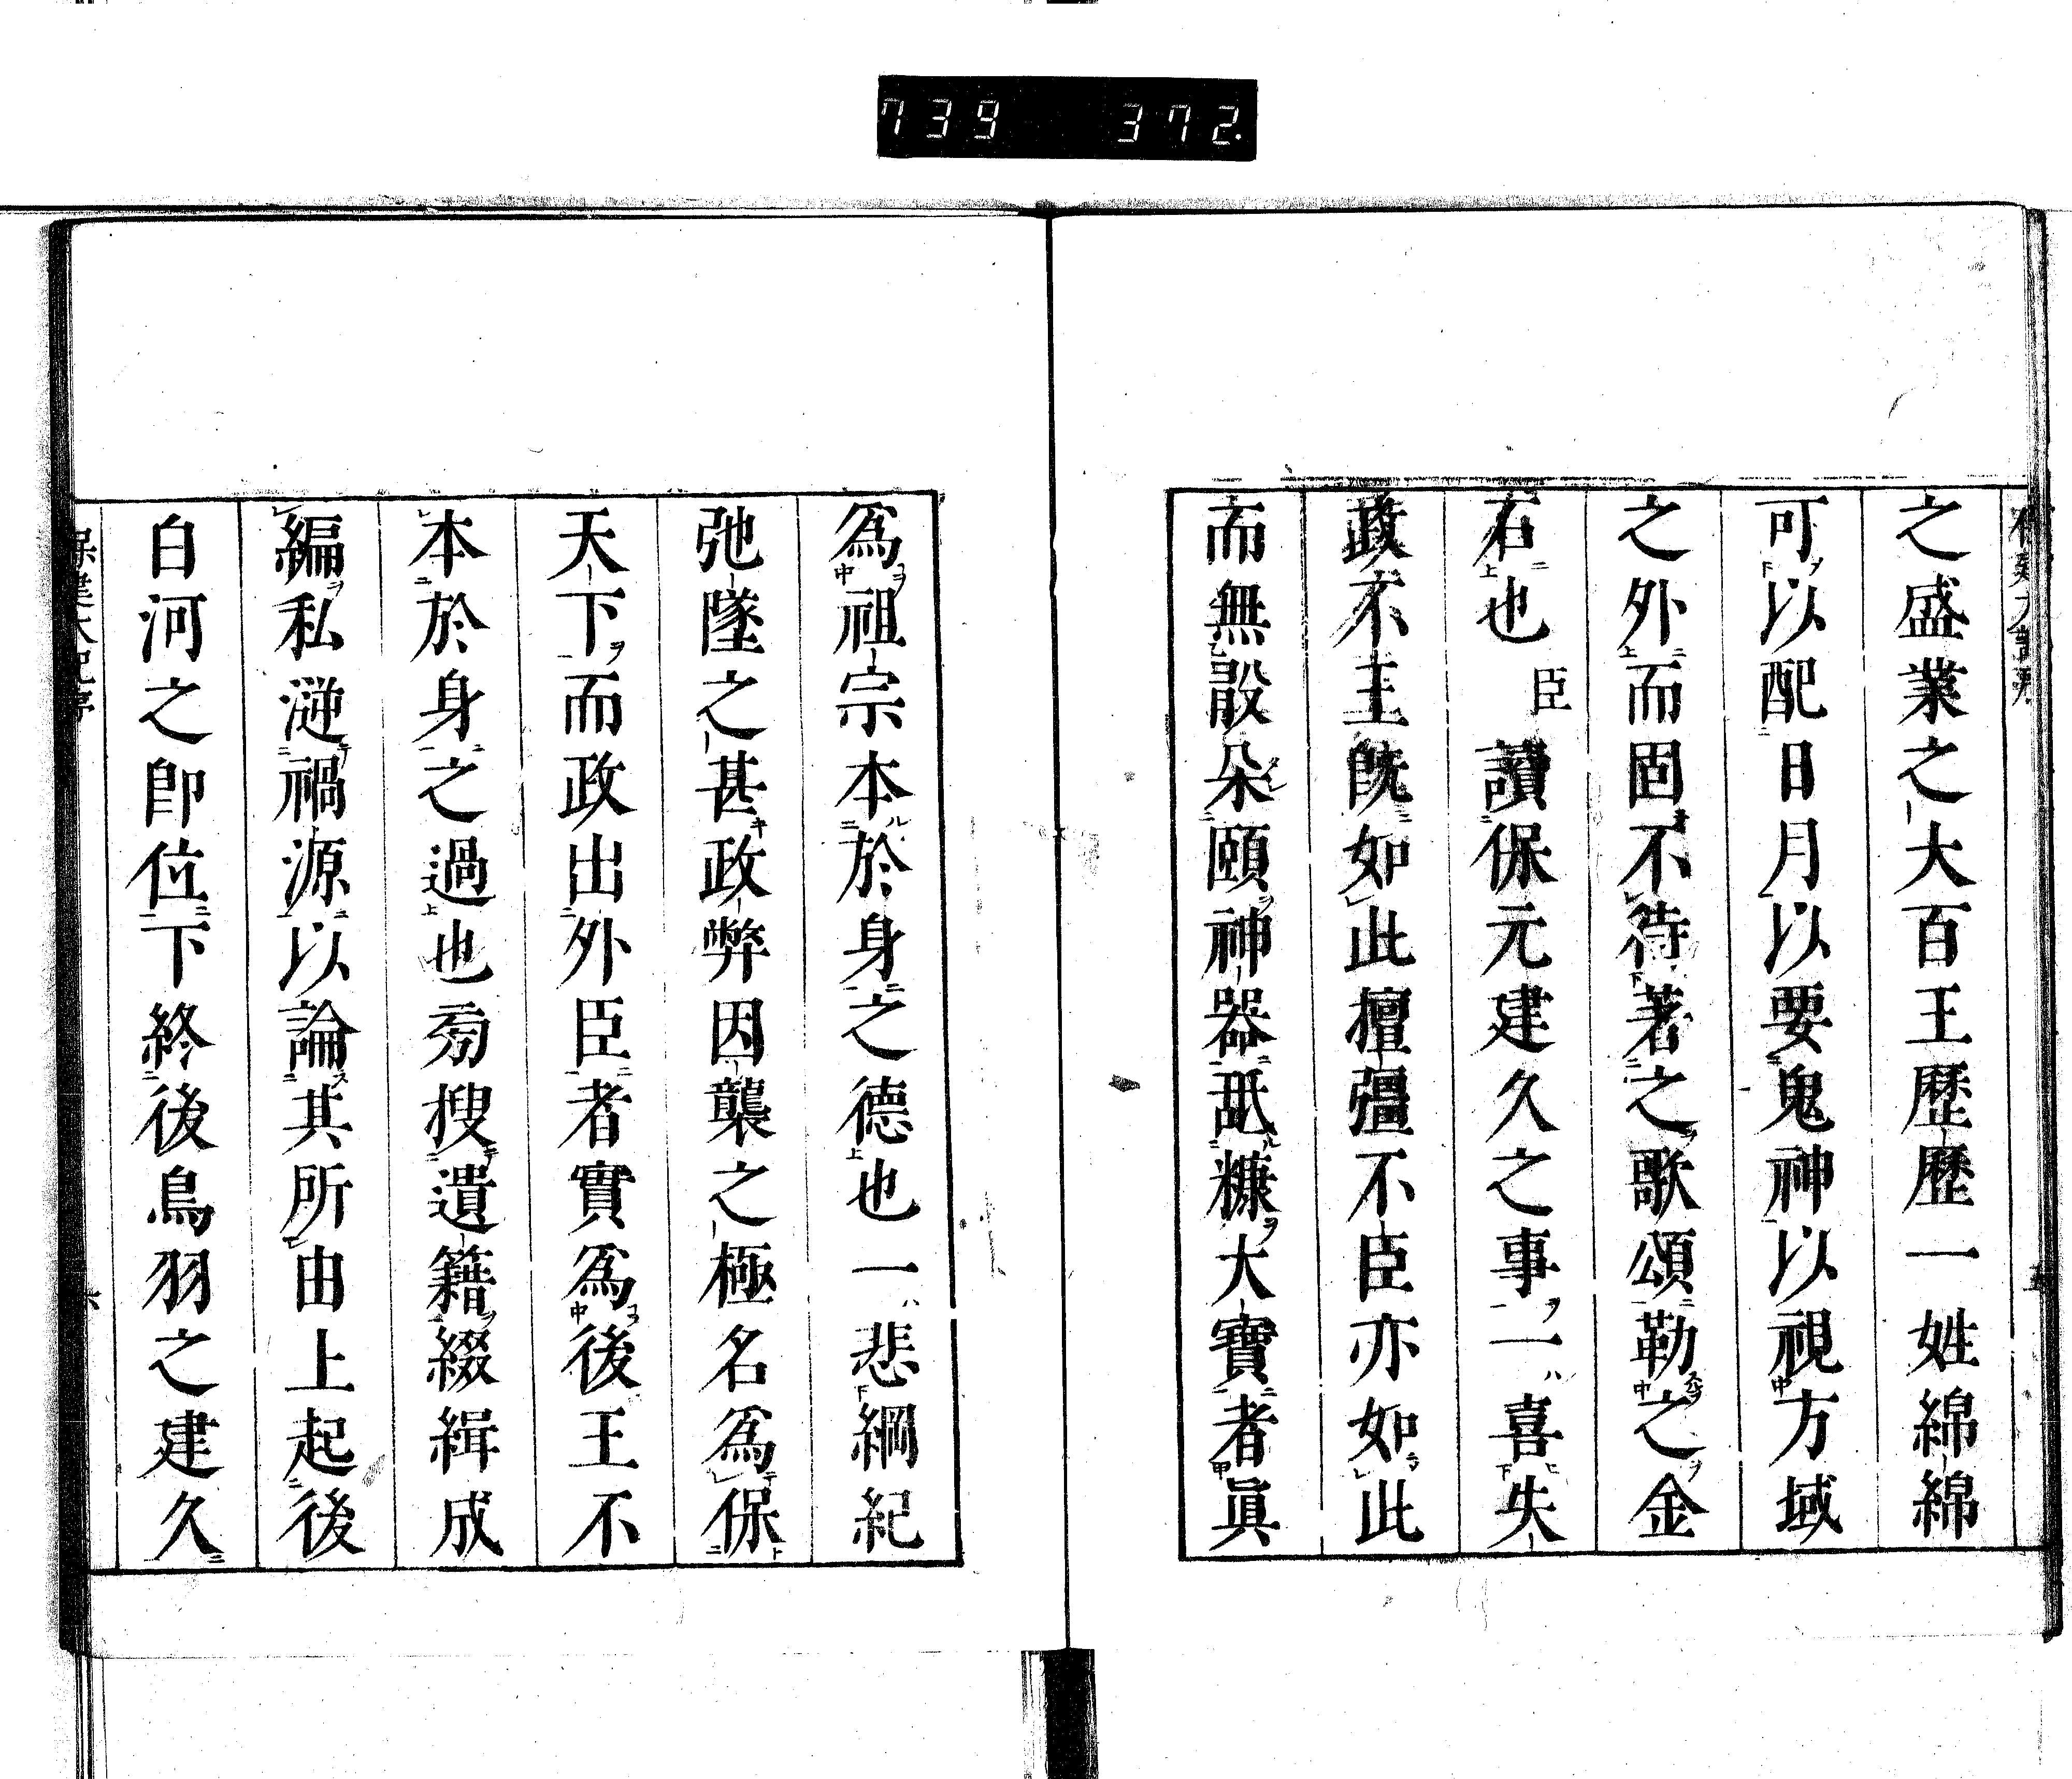 739 372.
之盛業之大百王歷歷一姓綿綿
可以配日月以要鬼神以視方域
之外而固不待著之歌頌勒之金
石也臣讀保元建久之事一喜失
政不主既如此擅彊不臣亦如此
而無設朵頤神器舐糠大寶者眞
爲祖宗本於身之德也一悲綱紀
弛墜之甚政弊因襲之極名爲保
天下而政出外臣者實爲後王不
本於身之過也旁搜遺籍綴緝成
編私遡禍源以論其所由上起後
白河之卽位下終後鳥羽之建久
保建大記序 六